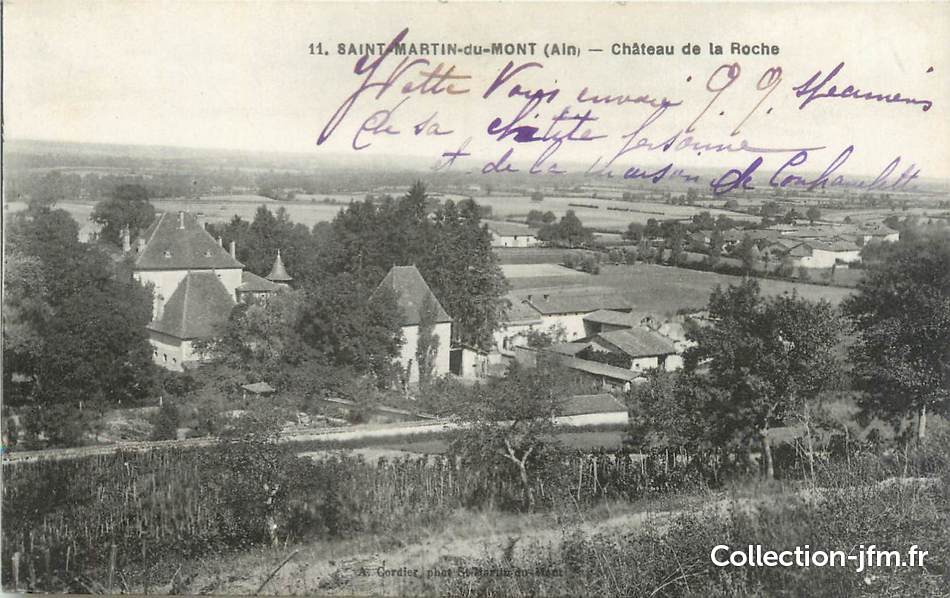 11. SAINT-MARTIN-du-MONT (Ain) — Château de la Roche
Yvette Vous envoie 9 9 specimens
de sa petite personne
et de la maison de Conflanchette
A. Cordier, phot St-Martin-du-Mont
Collection-jfm.fr